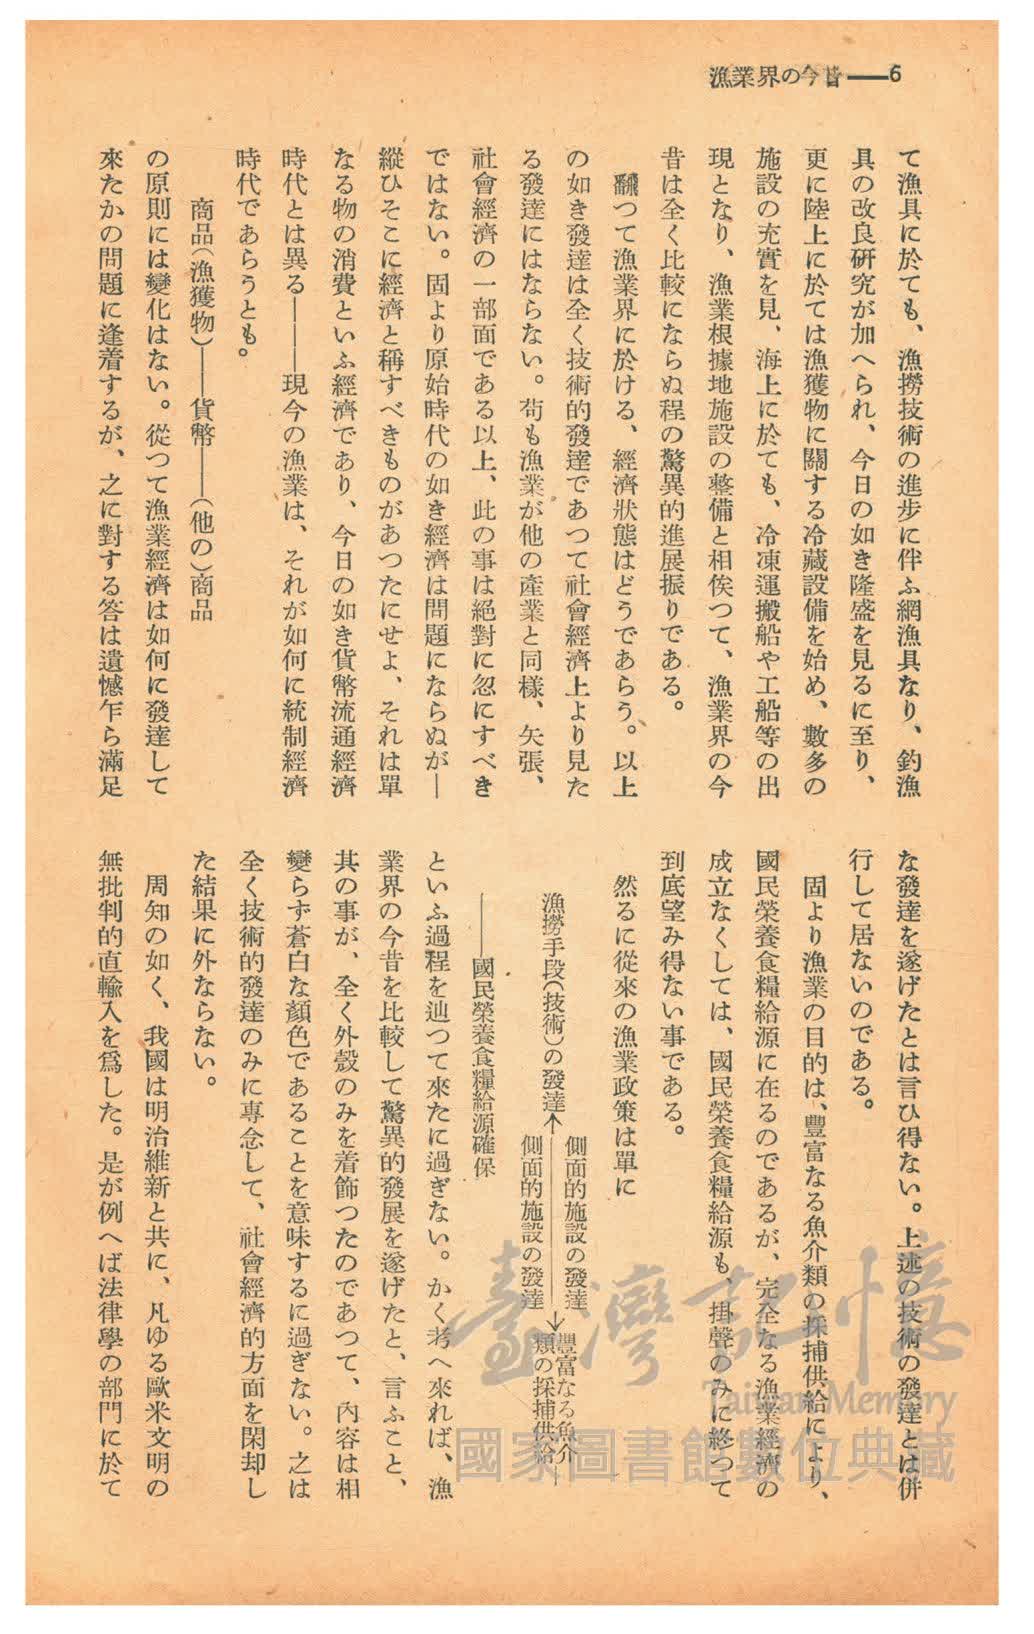 漁業界の今昔――6
て漁具に於ても、漁撈技術の進步に伴ふ網漁具なり、釣漁
具の改良硏究が加へられ、今日の如き隆盛を見るに至り、
更に陸上に於ては漁獲物に關する冷藏設備を始め、數多の
施設の充實を見、海上に於ても、冷凍運搬船や工船等の出
現となり、漁業根據地施設の整備と相俟つて、漁業界の今
昔は全く比較にならぬ程の驚異的進展振りである。
飜つて漁業界に於ける、經濟狀態はどうであらう。以上
の如き發達は全く技術的發達であつて社會經濟上より見た
る發達にはならない。苟も漁業が他の產業と同樣、矢張、
社會經濟の一部面である以上、此の事は絕對に忽にすべき
ではない。固より原始時代の如き經濟は問題にならぬが―
縱ひそこに經濟と稱すべきものがあつたにせよ、それは單
なる物の消費といふ經濟であり、今日の如き貨幣流通經濟
時代とは異る―――現今の漁業は、それが如何に統制經濟
時代であらうとも。
商品(漁獲物)――貨幣――(他の)商品
の原則には變化はない。從つて漁業經濟は如何に發達して
來たかの問題に逢着するが、之に對する答は遺憾乍ら滿足
な發達を遂げたとは言ひ得ない。上述の技術の發達とは併
行して居ないのである。
固より漁業の目的は、豐富なる魚介類の採捕供給により、
國民榮養食糧給源に在るのであるが、完全なる漁業經濟の
成立なくしては、國民榮養食糧給源も、掛聲のみに終つて
到底望み得ない事である。
然るに從來の漁業政策は單に
漁撈手段(技術)の發達←――→豐富なる魚介類の採捕供給―
側面的施設の發達
側面的施設の發達
――國民榮養食糧給源確保
といふ過程を辿つて來たに過ぎない。かく考へ來れば、漁
業界の今昔を比較して驚異的發展を遂げたと、言ふこと、
其の事が、全く外殼のみを着飾つたのであつて、內容は相
變らず蒼白な顏色であることを意味するに過ぎない。之は
全く技術的發達のみに專念して、社會經濟的方面を閑却し
た結果に外ならない。
周知の如く、我國は明治維新と共に、凡ゆる歐米文明の
無批判的直輸入を爲した。是が例へば法律學の部門に於て
臺灣記憶
Taiwan Memory
國家圖書館數位典藏